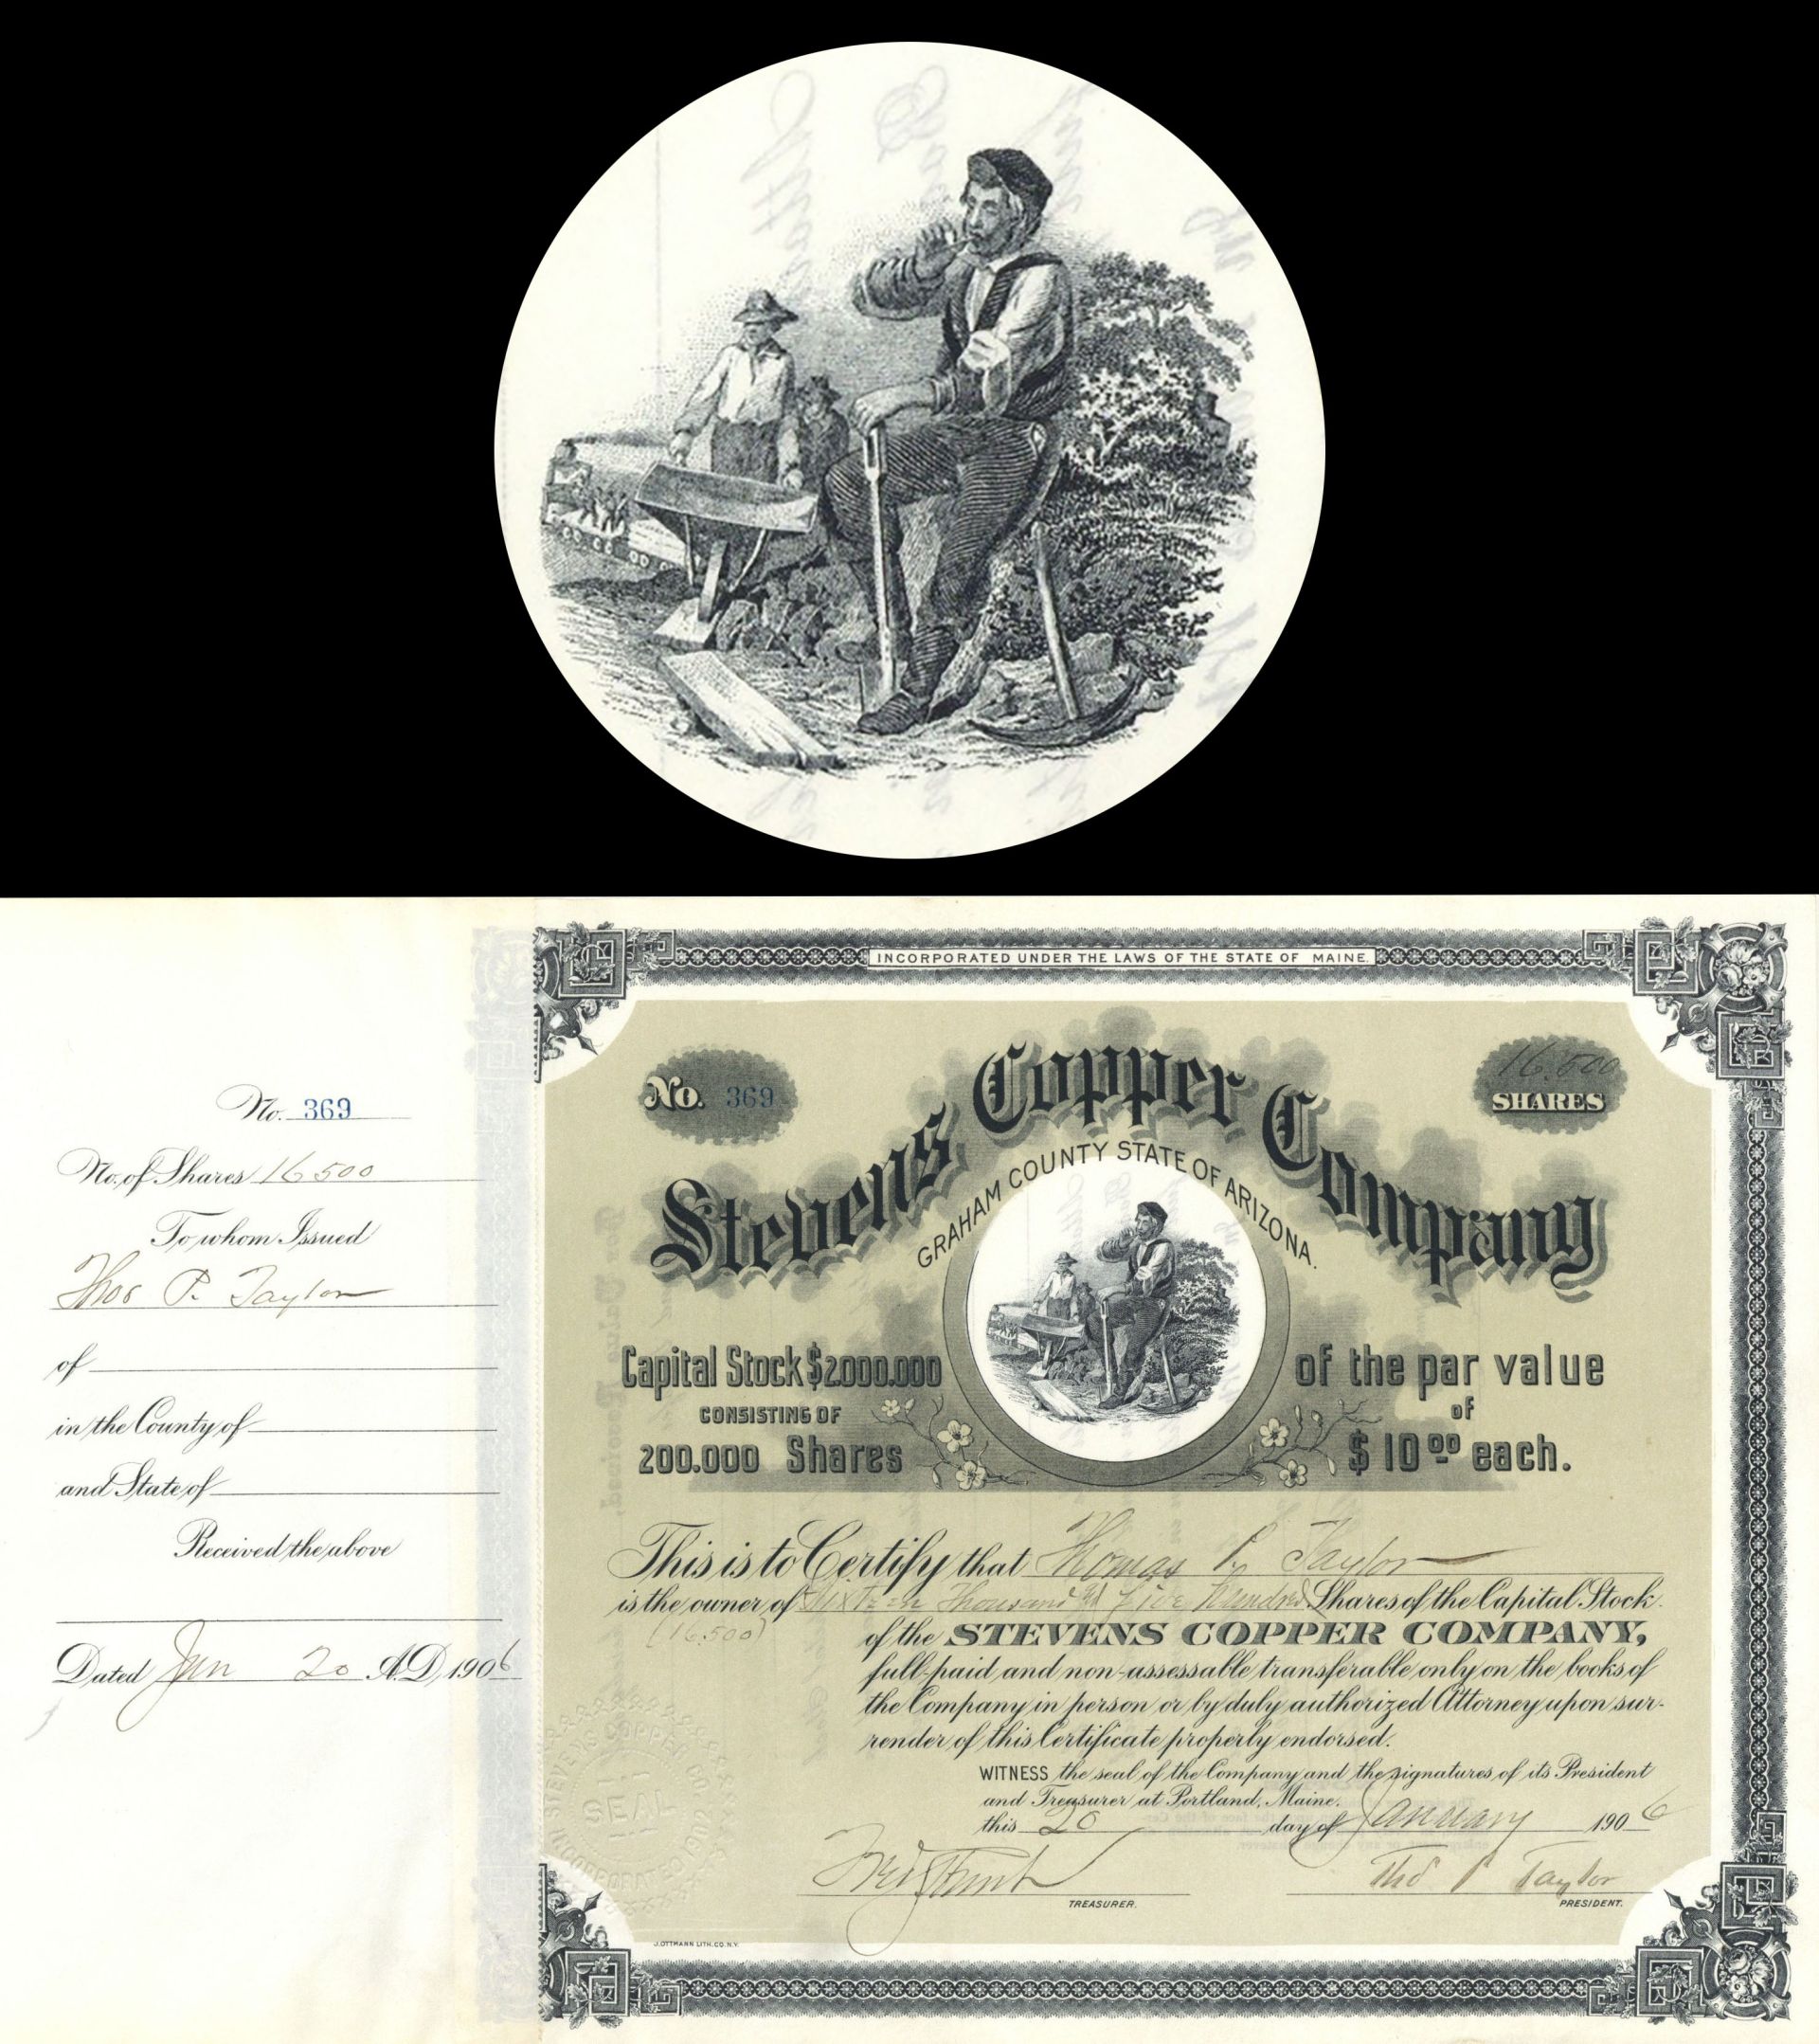 No. 369
No. of Shares 16500
To whom Issued
Thos P. Taylor
of
in the County of
and State of
Received the above
Dated Jan 20 A.D. 1906
INCORPORATED UNDER THE LAWS OF THE STATE OF MAINE.
No. 369
16.500
SHARES
Stevens Copper Company
GRAHAM COUNTY STATE OF ARIZONA.
Capital Stock $2.000.000
CONSISTING OF
200.000 Shares
of the par value
of
$10 00 each.
This is to Certify that Thomas P. Taylor
is the owner of Sixteen Thousand and Five Hundred Shares of the Capital Stock
(16,500) of the STEVENS COPPER COMPANY,
full-paid and non-assessable transferable only on the books of
the Company in person or by duly authorized Attorney upon sur-
render of this Certificate properly endorsed.
WITNESS the seal of the Company and the signatures of its President
and Treasurer at Portland, Maine.
this 20 day of January 1906
Thos P Taylor
TREASURER.
PRESIDENT.
STEVENS COPPER
SEAL
INCORPORATED
J. OTTMANN LITH. CO. N.Y.